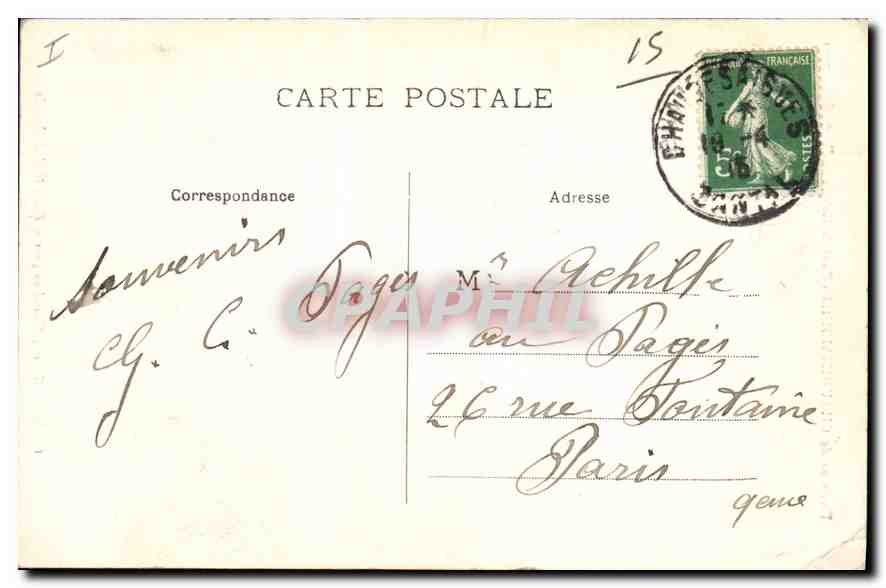 I
15
CARTE POSTALE
FRANÇAISE
POSTES
CHAUDESAIGUES
17 *
19 - 4
16
CANTAL
Correspondance
Adresse
Souvenirs
G. C. Pagès
Mr Achille
au Pagès
26 rue Fontaine
Paris
9eme
CPAPHIL